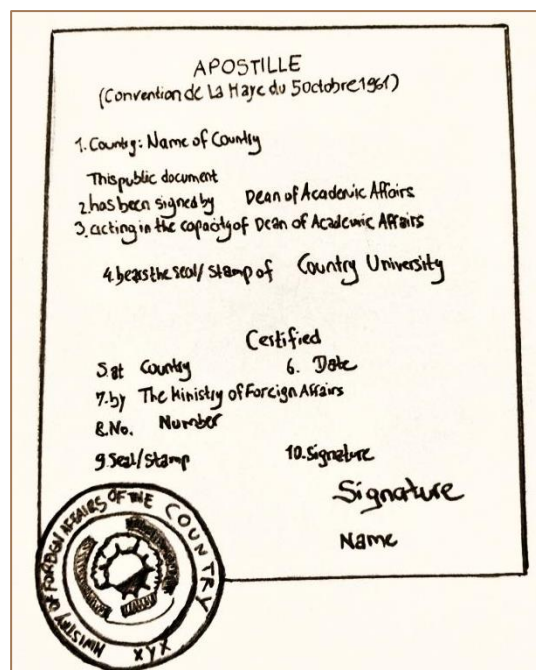 APOSTILLE
(Convention de La Haye du 5 Octobre 1961)
1. Country: Name of Country
This public document
2. has been signed by Dean of Academic Affairs
3. acting in the capacity of Dean of Academic Affairs
4. bears the seal/stamp of Country University
Certified
5. at Country 6. Date
7. by The Ministry of Foreign Affairs
8. No. Number
9. Seal/Stamp 10. Signature
Signature
Name
MINISTRY OF FOREIGN AFFAIRS OF THE COUNTRY
XYX